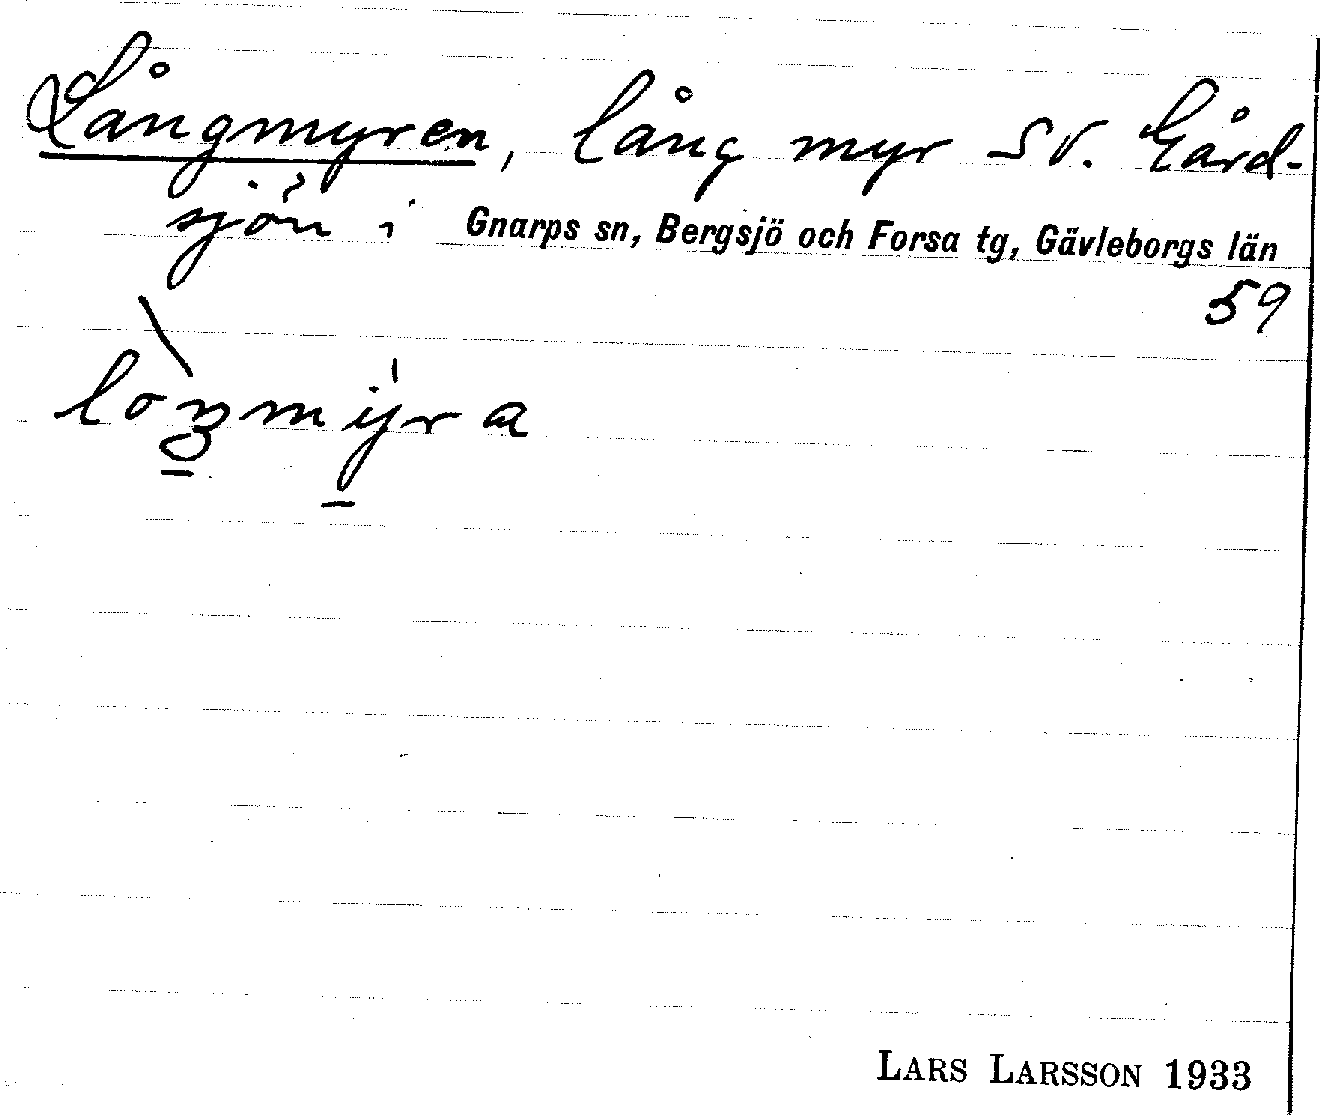 Långmyren, lång myr SV. Gård-
sjön i Gnarps sn, Bergsjö och Forsa tg, Gävleborgs län
59
loŋmyra
LARS LARSSON 1933